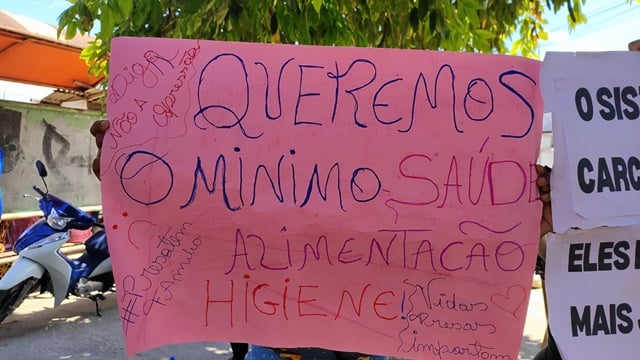 Diga
NÃO A
opressão
QUEREMOS
O MINIMO SAÚDE
ALIMENTAÇÃO
HIGIENE!
#Preso tem
#Familia
Vidas
Presas
importam
O SIS
CARC
ELES
MAIS